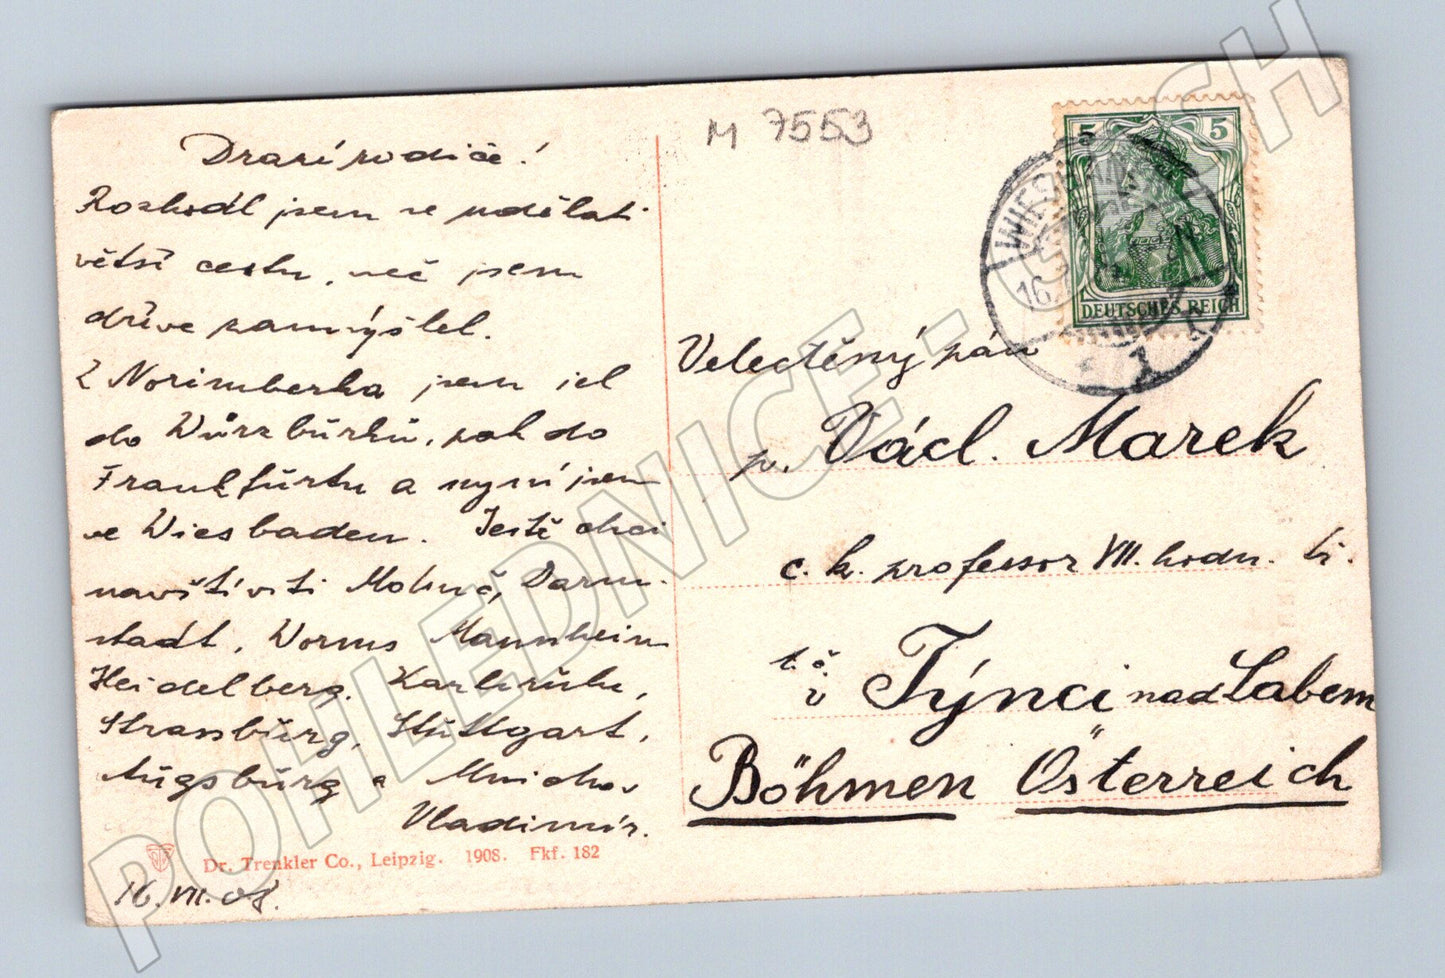 M 7553
Drazí rodiče!
Rozhodl jsem se udělati
větší cestu, než jsem
dříve zamýšlel.
Z Norimberka jsem jel
do Würzburku, pak do
Frankfurtu a nyní jsem
ve Wiesbaden. Ještě chci
navštíviti Mohuč, Darm-
stadt, Worms Mannheim
Heidelberg, Karlsruhe,
Strassburg, Stuttgart,
Augsburg a Mnichov
Vladimír.
Dr. Trenkler Co., Leipzig. 1908. Fkf. 182
16. VII. 08.
5 5
DEUTSCHES REICH
WIESBADEN
16.
1
Velectěný pán
p. Václ. Marek
c. k. professor VIII. hodn. tř.
t. č.
v Týnci nad Labem
Böhmen Österreich
POHLEDNICE-